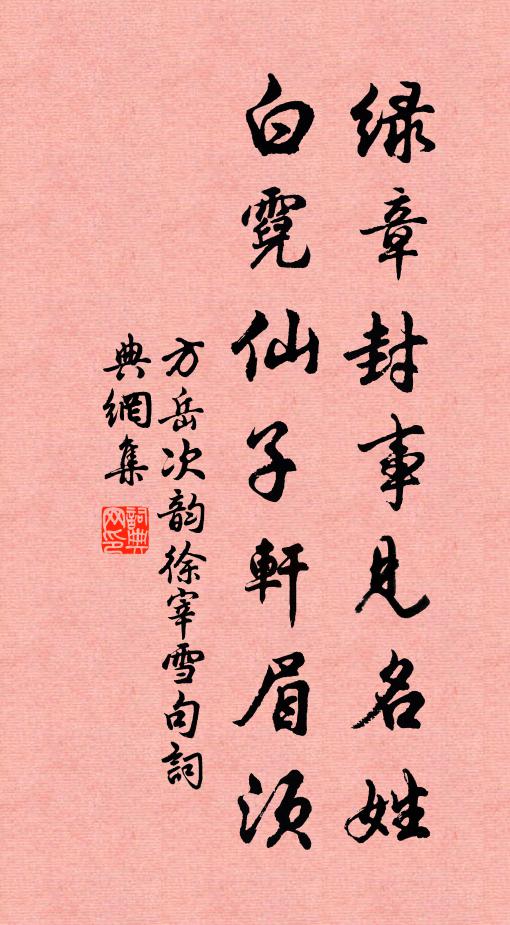 绿章封事見名姓
白霓仙子軒眉須
方岳次韵徐宰雪句詞
典網集
詞典网印